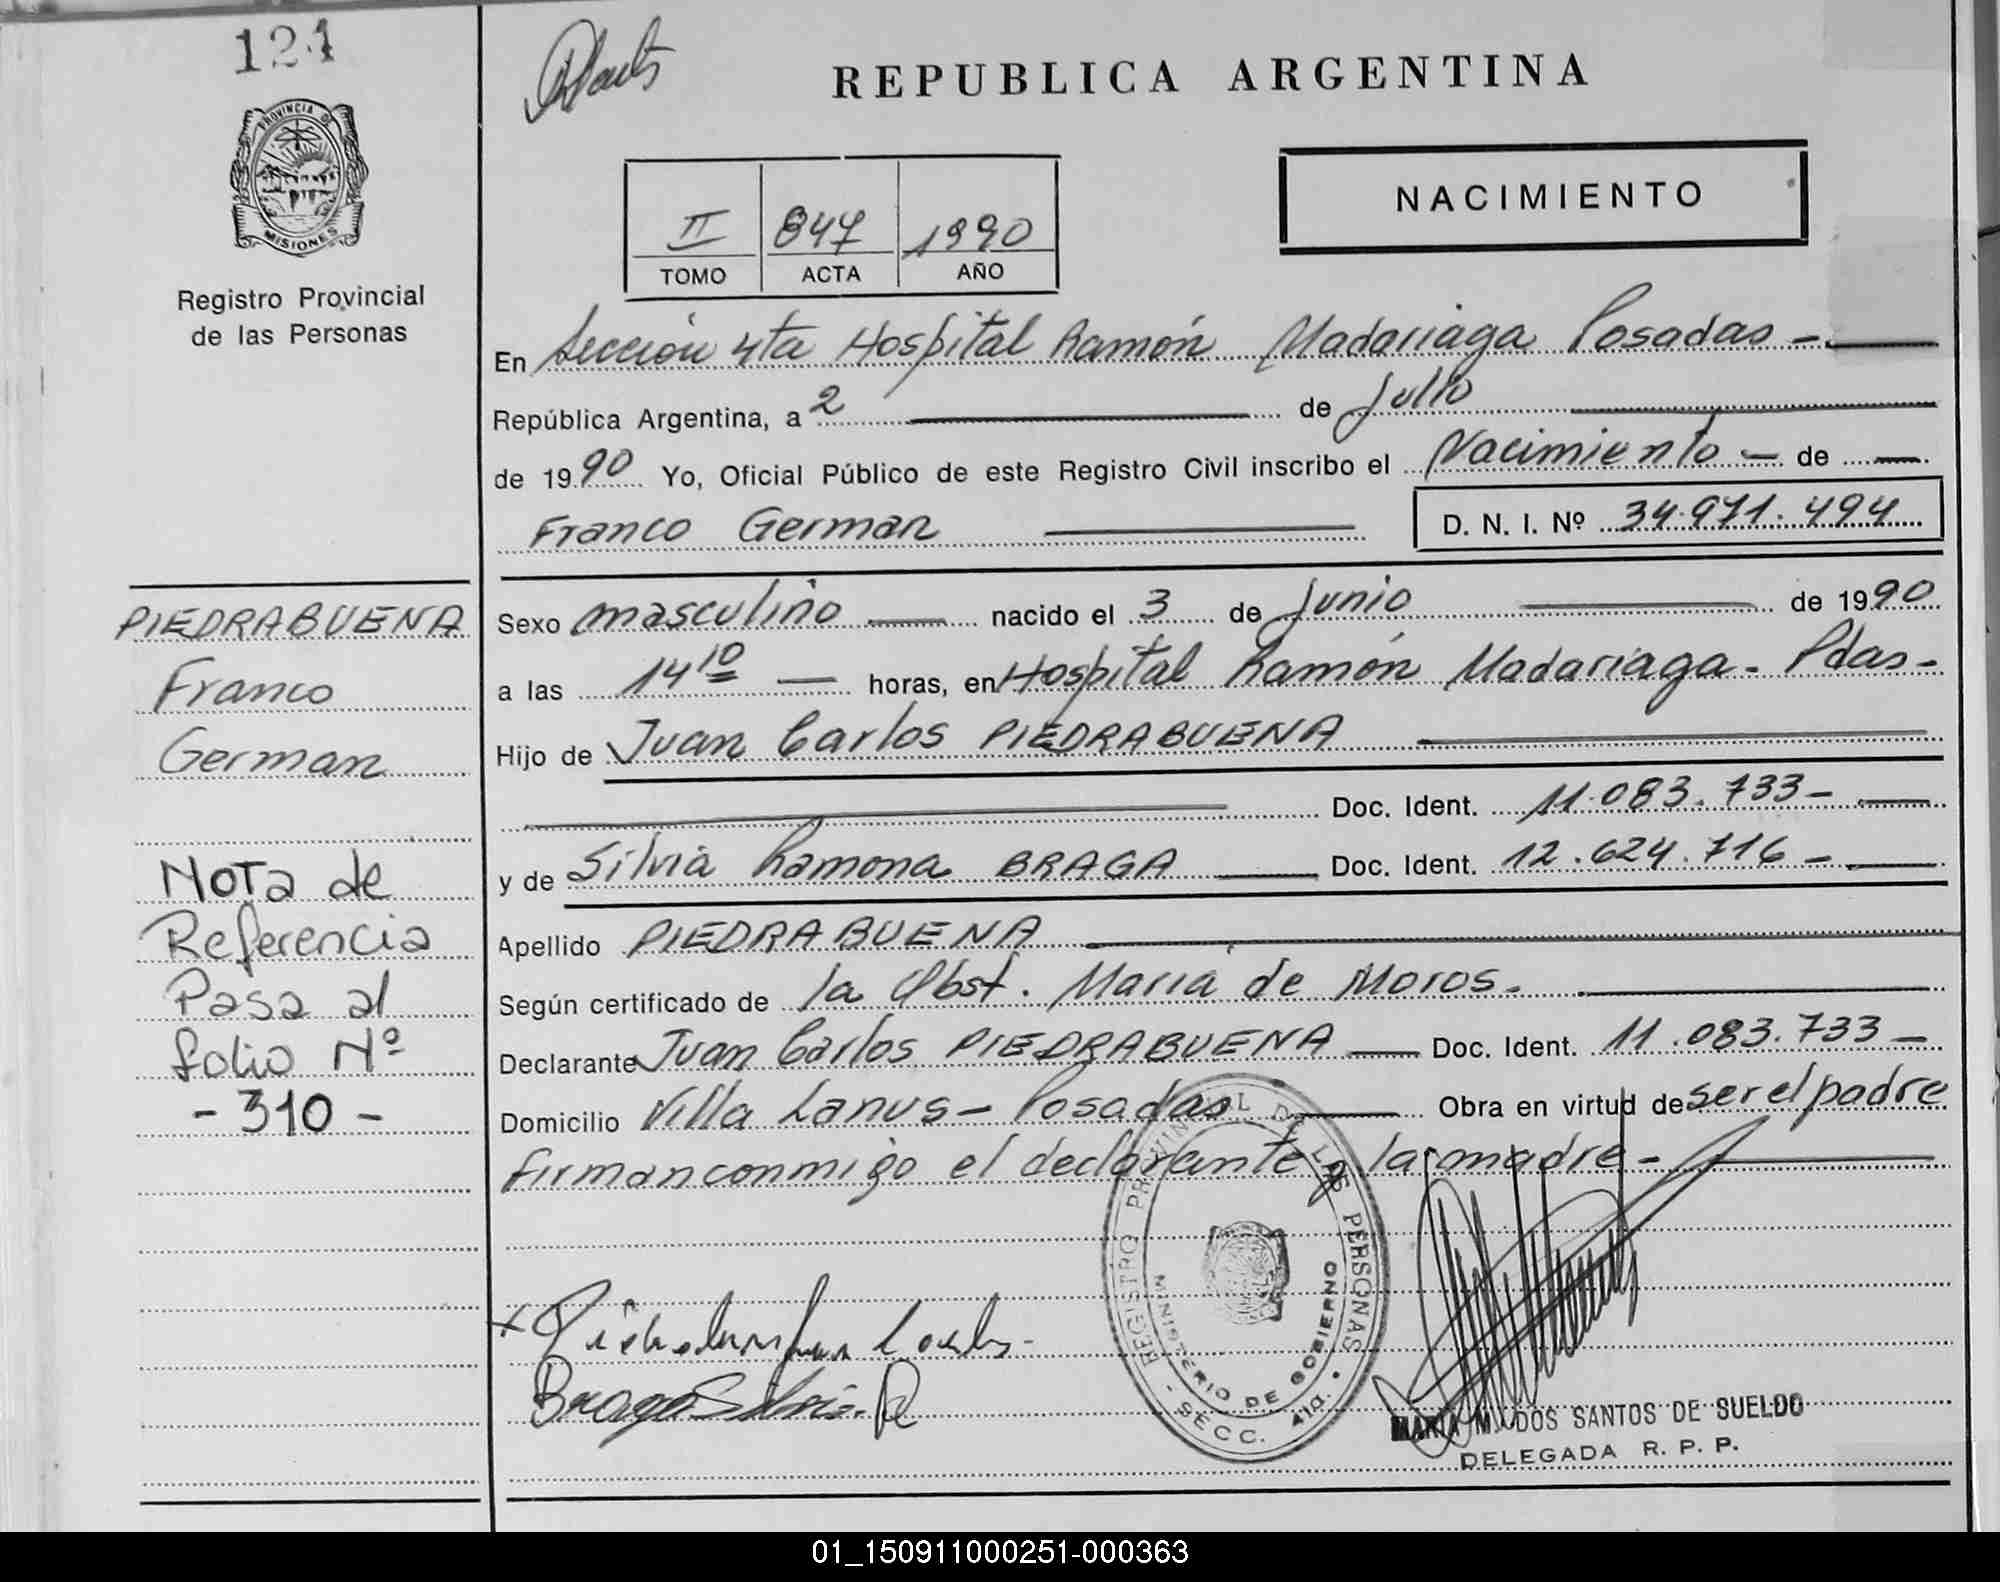 124
PROVINCIA DE
MISIONES
Registro Provincial
de las Personas
REPUBLICA ARGENTINA
II 847 1990
TOMO ACTA AÑO
NACIMIENTO
En Sección 4ta Hospital Ramón Madariaga Posadas -
República Argentina, a 2 de Julio
de 1990 Yo, Oficial Público de este Registro Civil inscribo el Nacimiento - de
Franco German
D. N. I. Nº 34.971.494
PIEDRABUENA
Franco
German
Nota de
Referencia
Pasa al
folio Nº
- 310 -
Sexo masculino nacido el 3 de Junio de 1990
a las 14 10 horas, en Hospital Ramón Madariaga - Pdas -
Hijo de Juan Carlos PIEDRABUENA
Doc. Ident. 11.083.733 -
y de Silvia Ramona BRAGA Doc. Ident. 12.624.716 -
Apellido PIEDRABUENA
Según certificado de la Obst. Maria de Moros.
Declarante Juan Carlos PIEDRABUENA Doc. Ident. 11.083.733 -
Domicilio Villa Lanus - Posadas Obra en virtud de ser el padre
firman conmigo el declarante y la madre -
REGISTRO PROVINCIAL DE LAS PERSONAS
MINISTERIO DE GOBIERNO
- SECC. 4ta. -
Braga Silvia R
MARIA M. DOS SANTOS DE SUELDO
DELEGADA R. P. P.
01_150911000251-000363